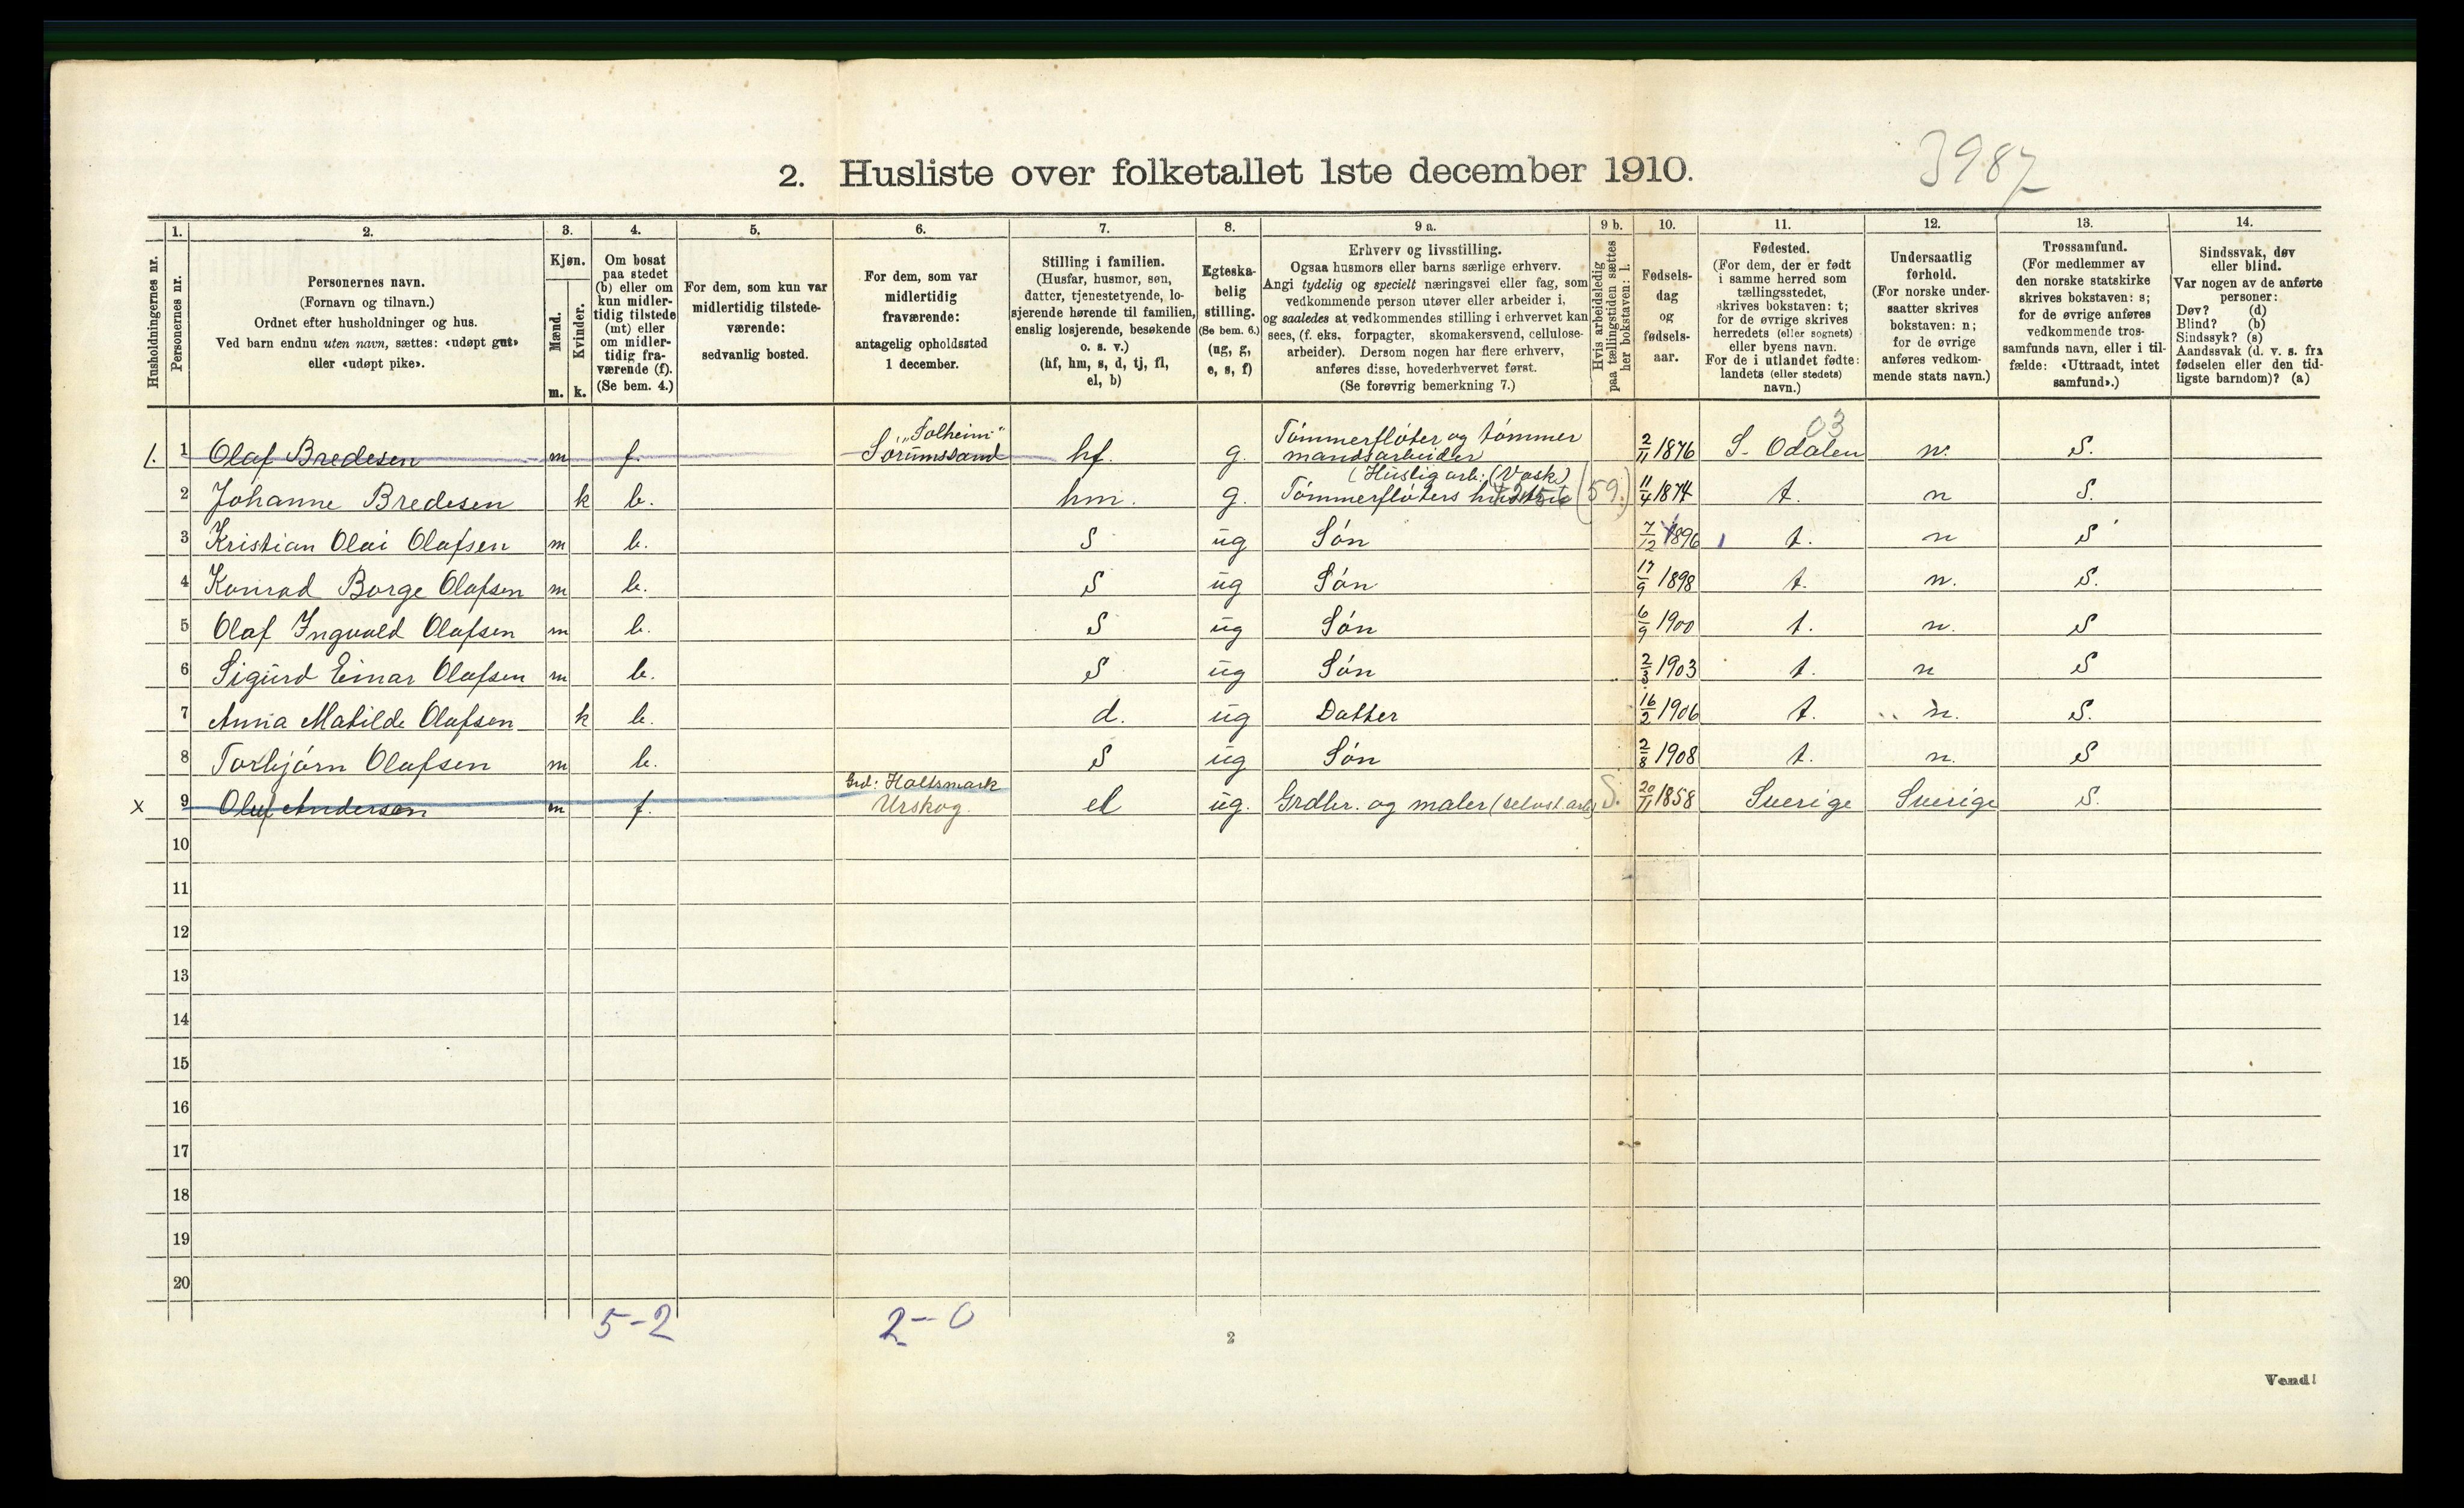 3987
2. Husliste over folketallet 1ste december 1910.
Husholdningernes nr.
1. Personernes nr.
2. Personernes navn. (Fornavn og tilnavn.) Ordnet efter husholdninger og hus. Ved barn endnu uten navn, sættes: «udøpt gut» eller «udøpt pike».
3. Kjøn. Mænd. m. Kvinder. k.
4. Om bosat paa stedet (b) eller om kun midlertidig tilstede (mt) eller om midlertidig fraværende (f). (Se bem. 4.)
5. For dem, som kun var midlertidig tilstedeværende: sedvanlig bosted.
6. For dem, som var midlertidig fraværende: antagelig opholdssted 1 december.
7. Stilling i familien. (Husfar, husmor, søn, datter, tjenestetyende, losjerende hørende til familien, enslig losjerende, besøkende o. s. v.) (hf, hm, s, d, tj, fl, el, b)
8. Egteskabelig stilling. (Se bem. 6.) (ug, g, e, s, f)
9 a. Erhverv og livsstilling. Ogsaa husmors eller barns særlige erhverv. Angi tydelig og specielt næringsvei eller fag, som vedkommende person utøver eller arbeider i, og saaledes at vedkommendes stilling i erhvervet kan sees, (f. eks. forpagter, skomakersvend, cellulosearbeider). Dersom nogen har flere erhverv, anføres disse, hovederhvervet først. (Se forøvrig bemerkning 7.)
9 b. Hvis arbeidsledig paa tællingstiden sættes her bokstaven: l.
10. Fødselsdag og fødselsaar.
11. Fødested. (For dem, der er født i samme herred som tællingsstedet, skrives bokstaven: t; for de øvrige skrives herredets (eller sognets) eller byens navn. For de i utlandet fødte: landets (eller stedets) navn.)
12. Undersaatlig forhold. (For norske undersaatter skrives bokstaven: n; for de øvrige anføres vedkommende stats navn.)
13. Trossamfund. (For medlemmer av den norske statskirke skrives bokstaven: s; for de øvrige anføres vedkommende trossamfunds navn, eller i tilfælde: «Uttraadt, intet samfund».)
14. Sindssvak, døv eller blind. Var nogen av de anførte personer: Døv? (d) Blind? (b) Sindssyk? (s) Aandssvak (d. v. s. fra fødselen eller den tidligste barndom)? (a)
1. 1 Olaf Bredesen m f. "Solheim" Sørumsand hf. g. Tømmerfløter og tømmermandsarbeider 2/11 1876 S. Odalen 03 n. S.
2 Johanne Bredesen k b. hm. g. (Huslig arb: (Vask) Tømmerfløters hustru (59.) 11/4 1874 t. n S.
3 Kristian Olai Olafsen m b. S ug Søn 7/12 1896 t. n S
4 Konrad Borge Olafsen m b. S ug Søn 17/9 1898 t. n. S.
5 Olaf Ingvald Olafsen m b. S ug Søn 6/9 1900 t. n. S
6 Sigurd Einar Olafsen m b. S ug Søn 2/3 1903 t. n S
7 Anna Matilde Olafsen k b. d. ug Datter 16/2 1906 t. n. S.
8 Torbjørn Olafsen m b. S ug Søn 2/8 1908 t. n. S
x 9 Oluf Anderson m f. Grd: Holtsmark Urskog. el ug. Grdbr. og maler (selvst. arb) S. 20/11 1858 Sverige Sverige S.
10
11
12
13
14
15
16
17
18
19
20
5-2 2-0
2
Vend!